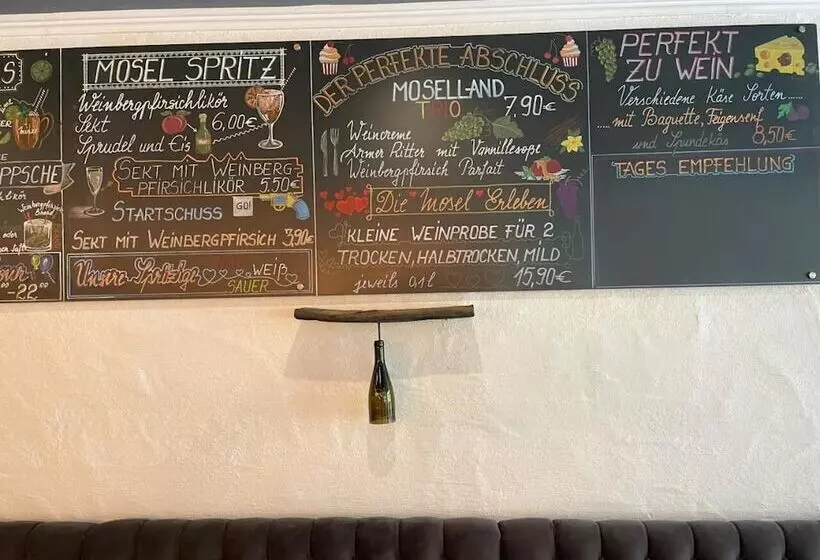 S
PPSCHE
likör
oder
-22⁰⁰
MOSEL SPRITZ
Weinbergpfirsichlikör
Sekt 6,00€
Sprudel und Eis
SEKT MIT WEINBERG-
PFIRSICHLIKÖR 5.50€
STARTSCHUSS GO!
SEKT MIT WEINBERGPFIRSICH 3,90€
Unsere Spritzige WEIß
SAUER
DER PERFEKTE ABSCHLUSS
MOSELLAND
TRIO 7,90€
Weincreme
Armer Ritter mit Vanillesoße
Weinbergpfirsich Parfait
Die Mosel Erleben
KLEINE WEINPROBE FÜR 2
TROCKEN, HALBTROCKEN, MILD
jeweils 0,1l 15,90€
PERFEKT
ZU WEIN
Verschiedene Käse Sorten......
..... mit Baguette, Feigensenf
und Spundekäs 8,50€
TAGES EMPFEHLUNG